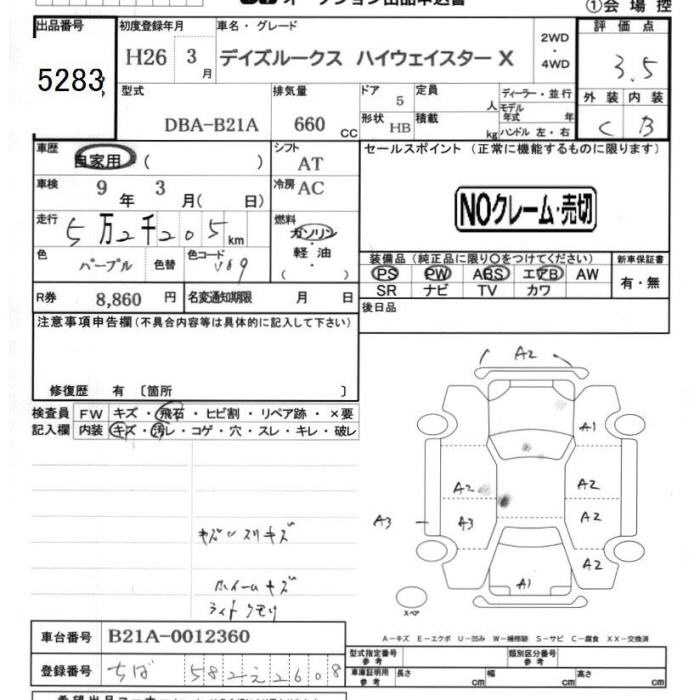 オークション出品申込書
①会場控
出品番号 初度登録年月 車名・グレード 評価点
5283 H26 3月 デイズルークス ハイウェイスター X 2WD・4WD 3.5
型式 排気量 ドア 5 定員 人 ディーラー・並行 外装 内装
DBA-B21A 660 cc 形状 HB 積載 kg モデル年式 年 ハンドル 左・右 C B
車歴 自家用 ( ) シフト AT セールスポイント (正常に機能するものに限ります)
車検 9年 3月( 日) 冷房 AC
NOクレーム・売切
走行 5万2千205km 燃料 ガソリン・軽油・( )
色 パープル 色替 色コード V69
装備品 (純正品に限り〇をつけてください) 新車保証書
PS PW ABS エアB AW 有・無
SR ナビ TV カワ
R券 8,860円 名変通知期限 月 日 後日品
注意事項申告欄 (不具合内容等は具体的に記入して下さい)
修復歴 有 〔箇所 〕
検査員 FW キズ・飛石・ヒビ割・リペア跡・×要
記入欄 内装 キズ・汚レ・コゲ・穴・スレ・キレ・破レ
A2
A1
A2 A2
A3 A3 A2
A2
A1
スペア
ホイールキズ
ライトクモリ
A－キズ E－エクボ U－凹み W－補修跡 S－サビ C－腐食 XX－交換済
車台番号 B21A-0012360
型式指定番号 参考 類別区分番号 参考
登録番号 ちば 582 え 2608
車庫証明用 参考 長さ cm 幅 cm 高さ cm